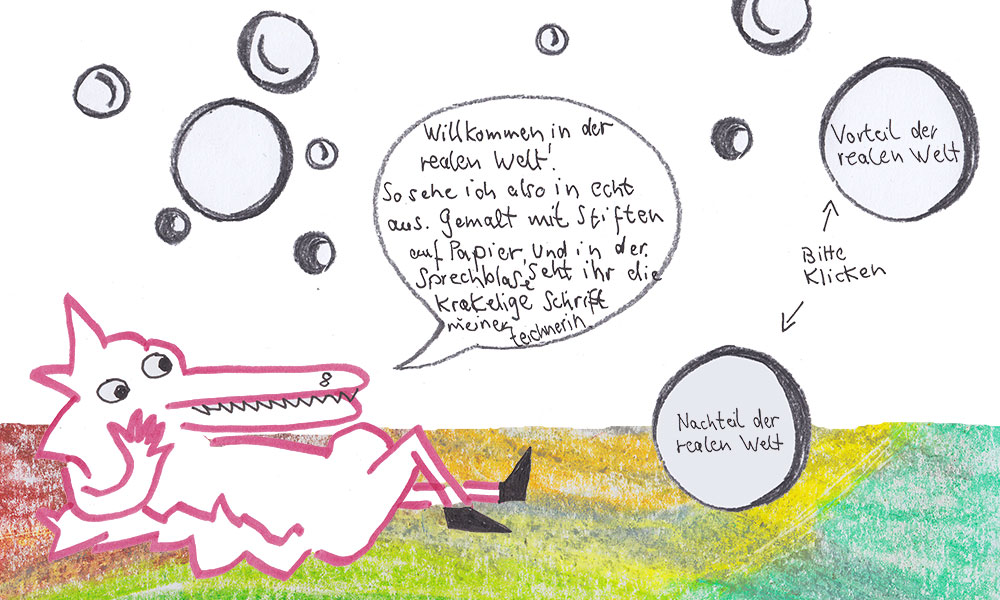 Willkommen in der
realen Welt!
So sehe ich also in echt
aus. Gemalt mit Stiften
auf Papier, und in der
Sprechblase seht ihr die
krakelige Schrift
meiner
Zeichnerin
Vorteil der
realen Welt
Bitte
Klicken
Nachteil der
realen Welt